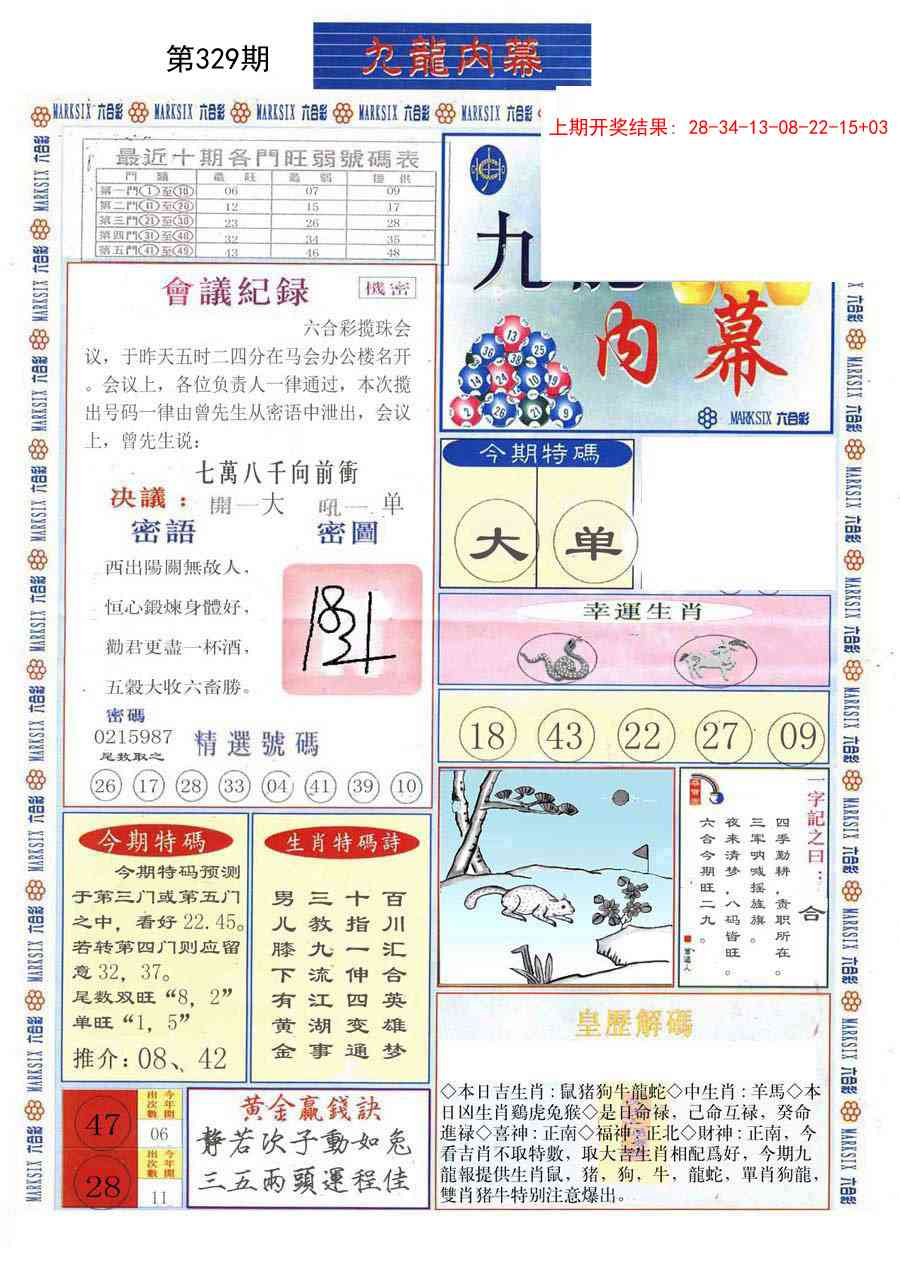 第329期
九龍内幕
MARKSIX 六合彩 MARKSIX 六合彩 MARKSIX 六合彩 MARKSIX 六合彩 MARKSIX 六合彩
上期开奖结果: 28-34-13-08-22-15+03
最近十期各門旺弱號碼表
門 類 最 旺 最 弱 提 供
第一門①至⑩ 06 07 09
第二門⑪至⑳ 12 15 17
第三門㉑至㉚ 23 26 28
第四門㉛至㊵ 32 34 35
第五門㊶至㊾ 43 46 48
會議紀録 機密
六合彩搅珠会
议，于昨天五时二四分在马会办公楼名开
。会议上，各位负责人一律通过，本次攬
出号码一律由曾先生从密语中泄出，会议
上，曾先生说：
七萬八千向前衝
决議： 開一大 吼一单
密語 密圖
西出陽關無故人，
恒心鍛煉身體好，
勸君更盡一杯酒，
五穀大收六畜勝。
密碼
0215987
尾数取之
精選號碼
26 17 28 33 04 41 39 10
九
内幕
13
36 38 25
14 24 10 19
2 26 21 9
MARKSIX 六合彩
今期特碼
大 单
幸運生肖
18 43 22 27 09
今期特碼
今期特码预测
于第三门或第五门
之中，看好 22.45。
若转第四门则应留
意32，37。
尾数双旺“8，2”
单旺“1，5”
推介：08、42
生肖特碼詩
男 三 十 百
儿 教 指 川
膝 九 一 汇
下 流 伸 合
有 江 四 英
黄 湖 变 雄
金 事 通 梦
一字記之曰：合
四季勤耕，责职所在。
三军呐喊摇旌旗。
夜来清梦，八码皆旺。
六合今期旺二九。
皇歷解碼
◇本日吉生肖：鼠猪狗牛龍蛇◇中生肖：羊馬◇本
日凶生肖鷄虎兔猴◇是日命禄，己命互禄，癸命
進禄◇喜神：正南◇福神：正北◇財神：正南，今
看吉肖不取特數，取大吉生肖相配爲好，今期九
龍報提供生肖鼠，猪，狗，牛，龍蛇，單肖狗龍，
雙肖猪牛特别注意爆出。
47 今年開出次數 06
28 今年開出次數 11
黄金赢錢訣
静若次子動如兔
三五兩頭運程佳